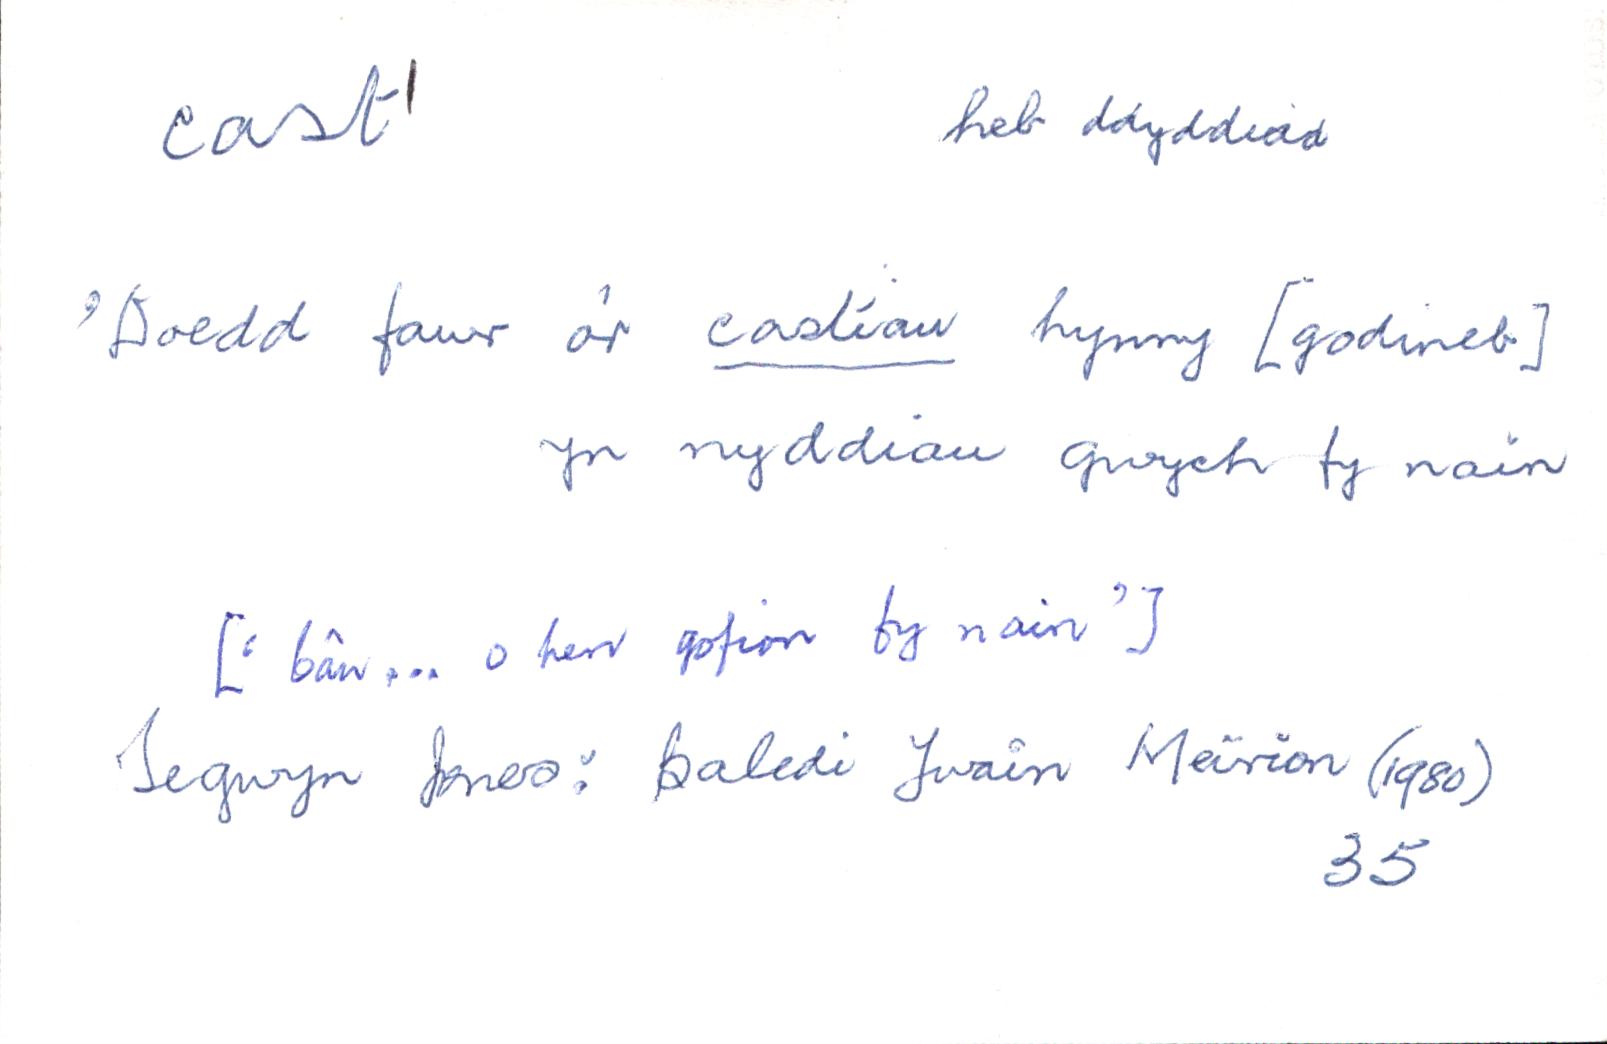 cast¹ heb ddyddiad
'Doedd fawr o'r castiau hynny [godineb]
yn nyddiau gwych fy nain
[‘bân... o hen gofion fy nain’]
Tegwyn Jones: Baledi Ywain Meirion (1980)
35